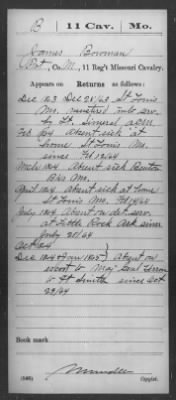 B | 11 Cav. | Mo.
James Bowman
Pvt, Co. M, 11 Reg't Missouri Cavalry.
Appears on
Returns as follows:
Dec 163 Dec 28/63 St Louis
Mo. mustered into serv.
by Lt.
Feb 164 absent sick at
home St Louis Mo.
since Feb 12/64
Mch 164 absent sick Benton
Bks Mo.
April 164 absent sick at home
St Louis Mo.
July 164 Absent on det. serv.
at Little Rock Ark since
July 28/64
Oct 64
Absent on
escort to Maj Genl
to Ft Smith since Oct
29/64
Book mark:
(546)
Copyist.